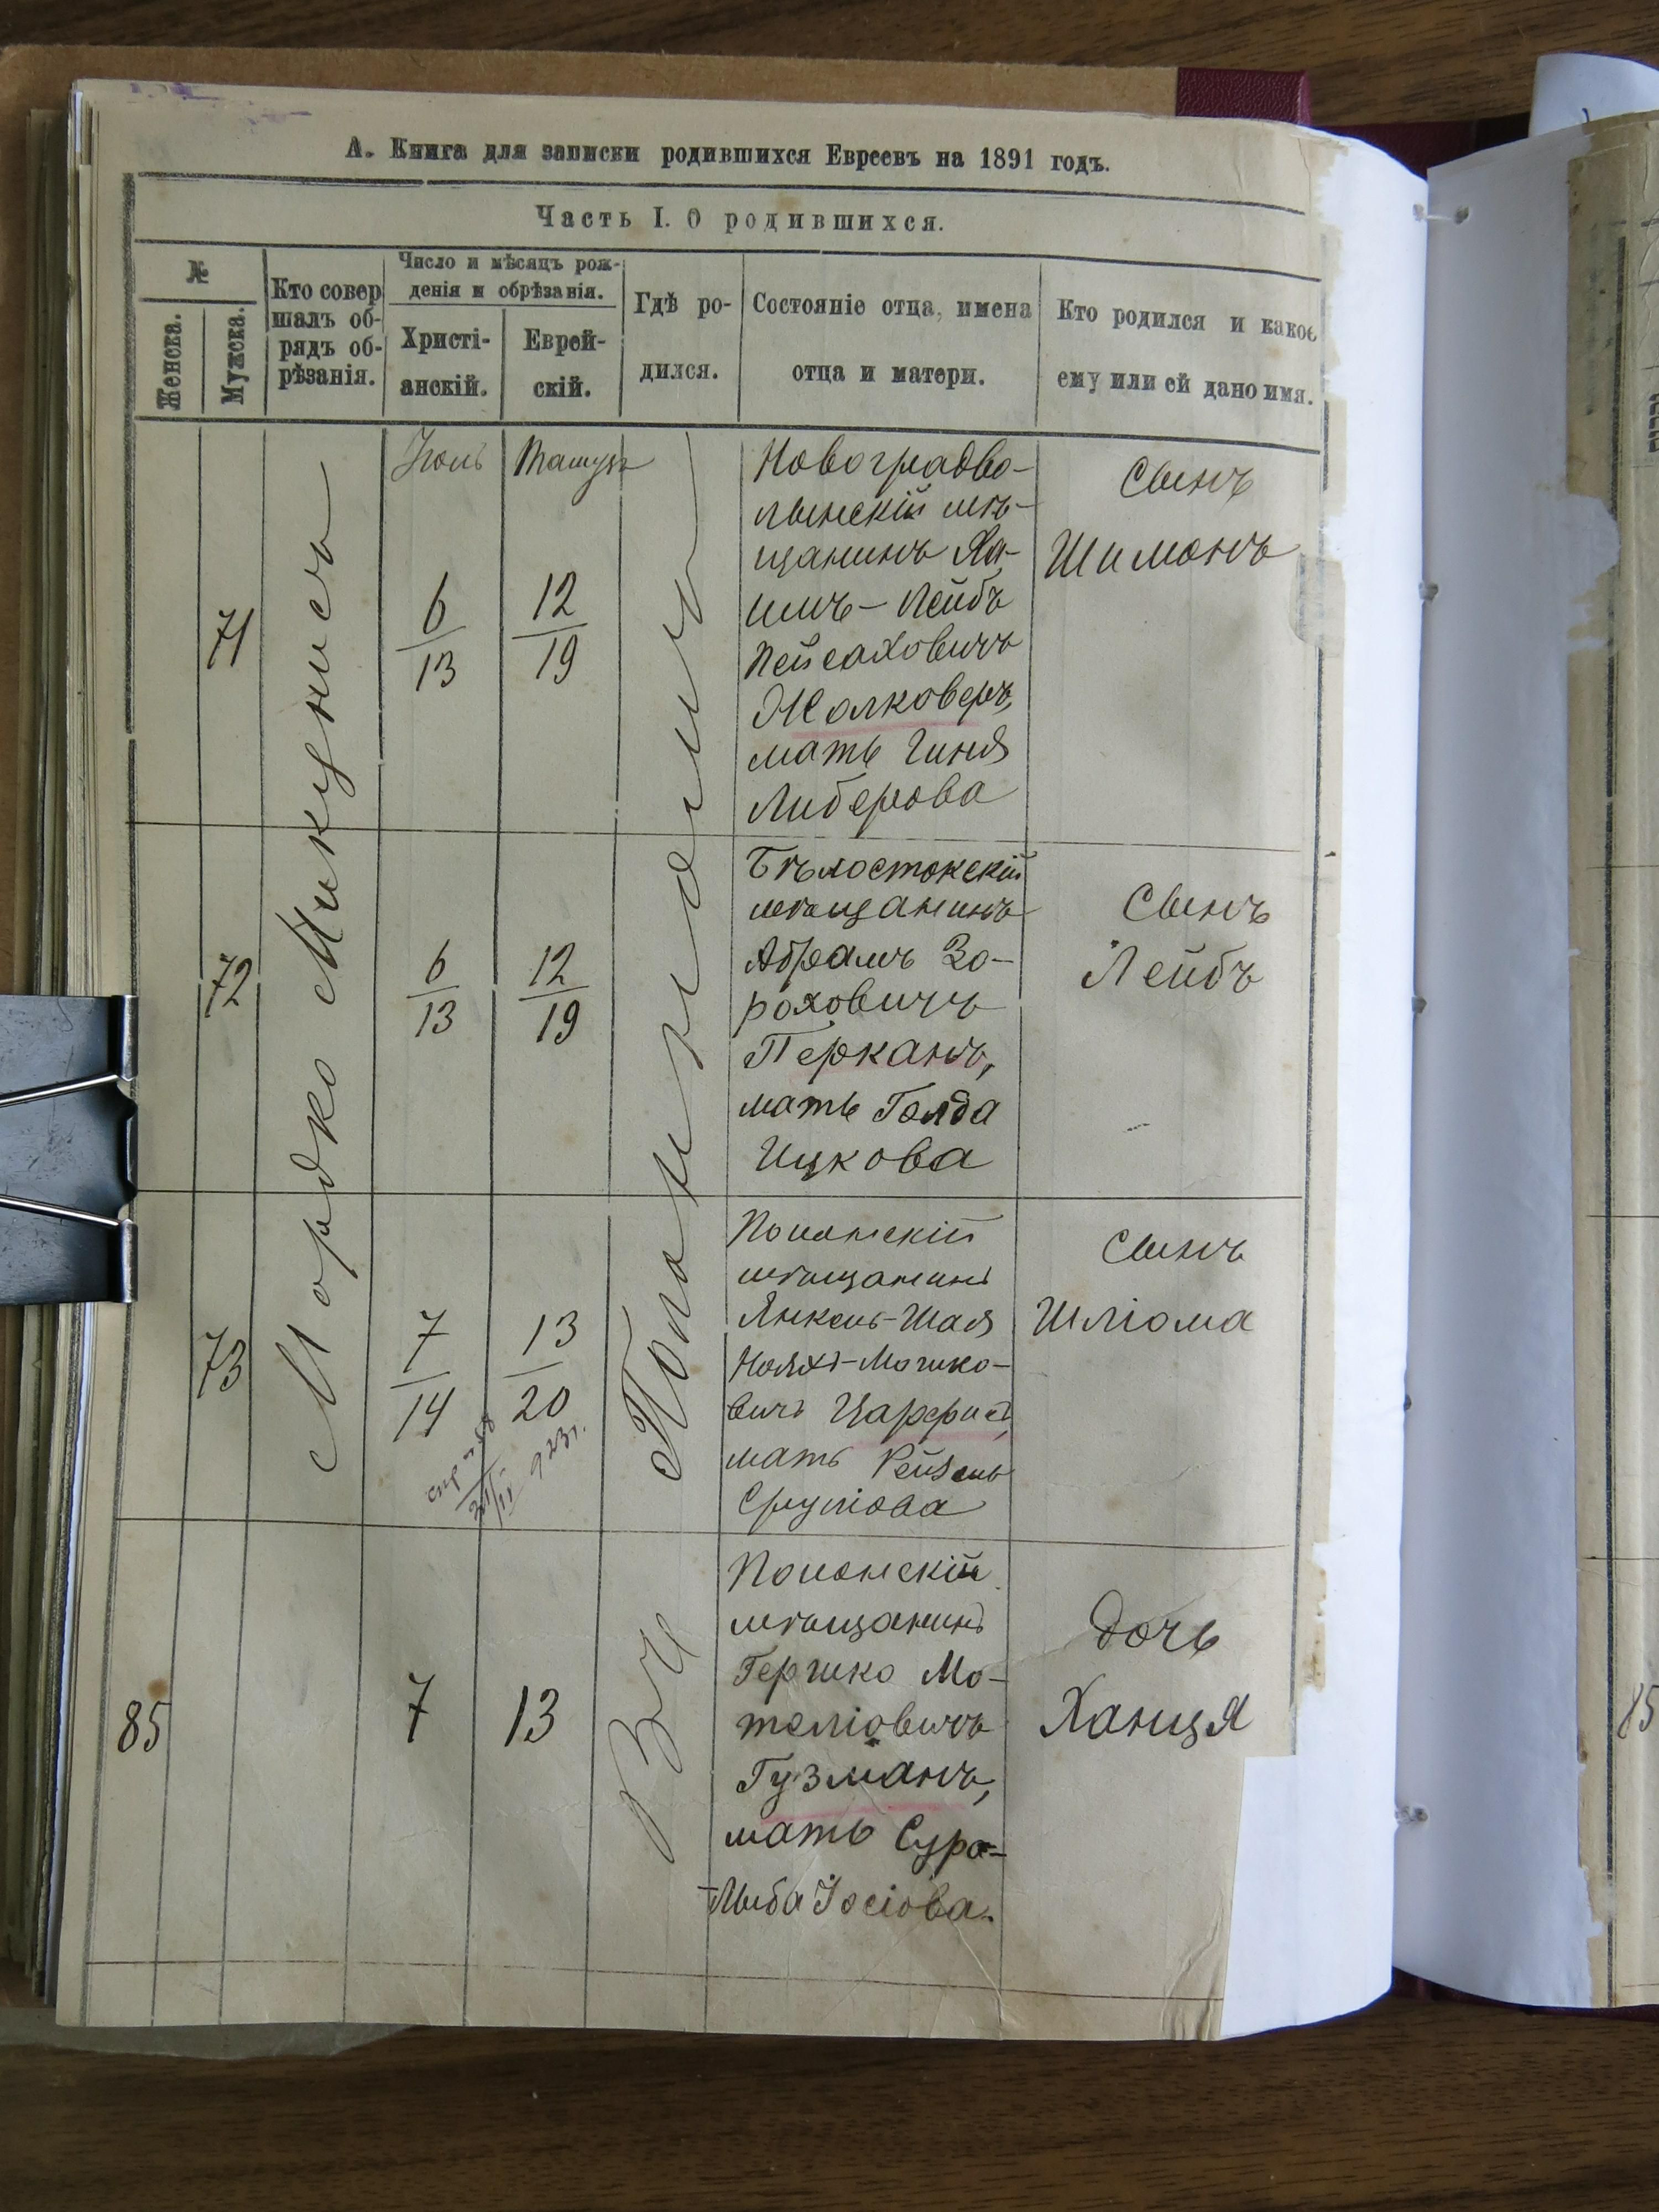 А. Книга для записки родившихся Евреевъ на 1891 годъ.
Часть I. О родившихся.
№
Женска.
Мужска.
Кто совер
шалъ об-
рядъ об-
рѣзанія.
Число и мѣсяцъ рож-
денія и обрѣзанія.
Христі-
анскій.
Еврей-
скій.
Гдѣ ро-
дился.
Состояніе отца, имена
отца и матери.
Кто родился и какое
ему или ей дано имя.
Мордко Микунисъ
Въ
71
Іюль
6
13
Тамузъ
12
19
Новоградво-
лынскій мѣ-
щанинъ Ха-
имъ-Лейбъ
Пейсаховичъ
Жолковеръ,
мать Гиня
Либерова
Сынъ
Шимонъ
72
6
13
12
19
Бѣлостокскій
мѣщанинъ
Абрамъ Зо-
роховичъ
Перканъ,
мать Голда
Ицкова
Сынъ
Лейбъ
73
7
14
13
20
923г.
Полонскій
мѣщанинъ
Янкель-Шая
Мошко-
вичъ
мать Рейзель
Срулiова
Сынъ
Шліома
85
7
13
Полонскій
мѣщанинъ
Гершко Мо-
теліовичъ
Гузманъ,
мать Сура-
Либа Іосіова.
дочь
Ханця
85